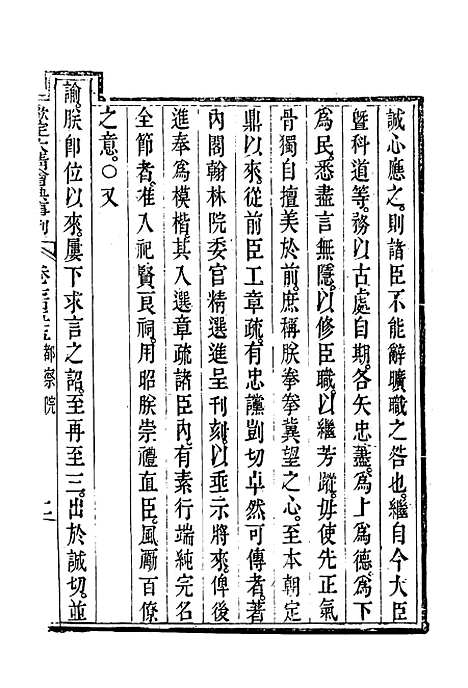 誠心應之。則諸臣不能辭曠職之咎也。繼自今大臣
曁科道等。務以古處自期。各矢忠藎。爲上爲德。爲下
爲民。悉盡言無隱。以修臣職。以繼芳蹤。毋使先正氣
骨獨自擅美於前。庶稱朕拳拳冀望之心。至本朝定
鼎以來。從前臣工章疏。有忠讜剴切卓然可傳者。著
內閣翰林院委官精選進呈刊刻。以垂示將來。俾後
進奉爲模楷。其入選章疏諸臣內。有素行端純完名
全節者。准入祀賢良祠。用昭朕崇禮直臣。風勵百僚
之意。○又
諭。朕卽位以來。屢下求言之詔。至再至三。出於誠切。並
欽定大清會典事例
都察院